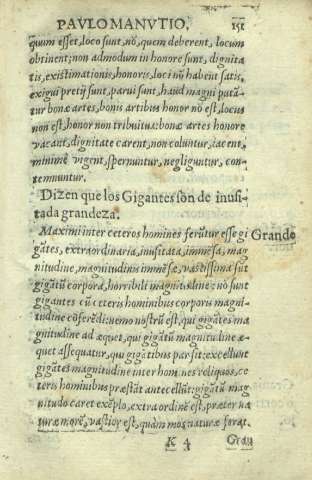 PAVLO MANVTIO, 151
quum esset, loco sunt, nō, quem deberent, locum
obtinent; non admodum in honore sunt, dignita
tis, existimationis, honoris, loci nū habent satis,
exigui pretij sunt, parui sunt, haud magni putā-
tur bonæ artes, bonis artibus honor nō est, locus
non est, honor non tribuitur: bonæ artes honore
vacant, dignitate carent, non coluntur, iacent,
minimè vigent, spernuntur, negliguntur, con-
temnuntur.
Dizen que los Gigantes son de inusi-
tada grandeza.
Maximi inter cæteros homines ferūtur esse gi Grande
gātes, extraordinaria, inusitata, immēsa, mag
nitudine, magnitudinis immēsæ, vastissima sūt
gigātū corpora, horribili magnitudine: nō sunt
gigantes cū cæteris hominibus corporis magni
tudine cōferēdi: nemo nostrū est, qui gigātes ma
gnitudine ad æquet, qui gigātū magnitudine æ-
quet assequatur, qui gigātibus par sit: excellunt
gigātes magnitudine inter homines reliquos, cæ
teris hominibus præstāt antecellūt: gigātū mag
nitudo caret exēplo, extra ordinē est, præter na
turæ morē, vastior est, quàm mos naturæ ferat.
K 4 Gran